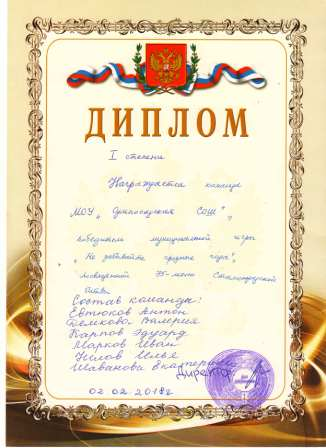 ДИПЛОМ
I степени
Награждается команда
МОУ „ СОШ",
победитель муниципальной игры
„ Не забывайте грозные года",
посвящённой 75-летию Сталинградской
битвы
Состав команды:
Евтюков Антон
Валерия
Карпов Эдуард
Марков Иван
Илья
Екатерина
Директор
02.02.2018г